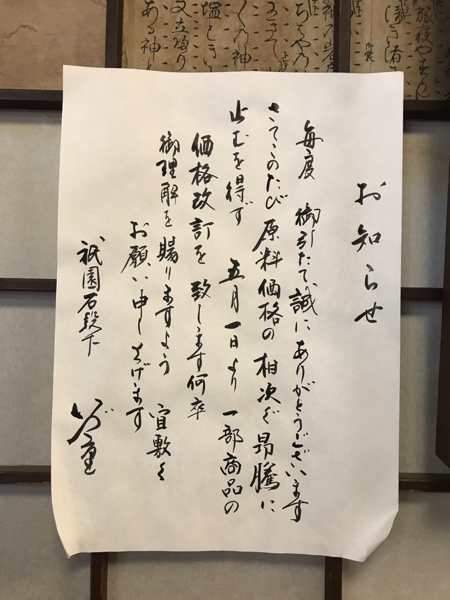 お知らせ
毎度 御引たて誠にありがとうございます
さてこのたび原料価格の相次ぐ昂騰に
止むを得ず 五月一日より一部商品の
価格改訂を致します何卒
御理解を賜りますよう 宜敷く
お願い申し上げます
祇園石段下
いづ重